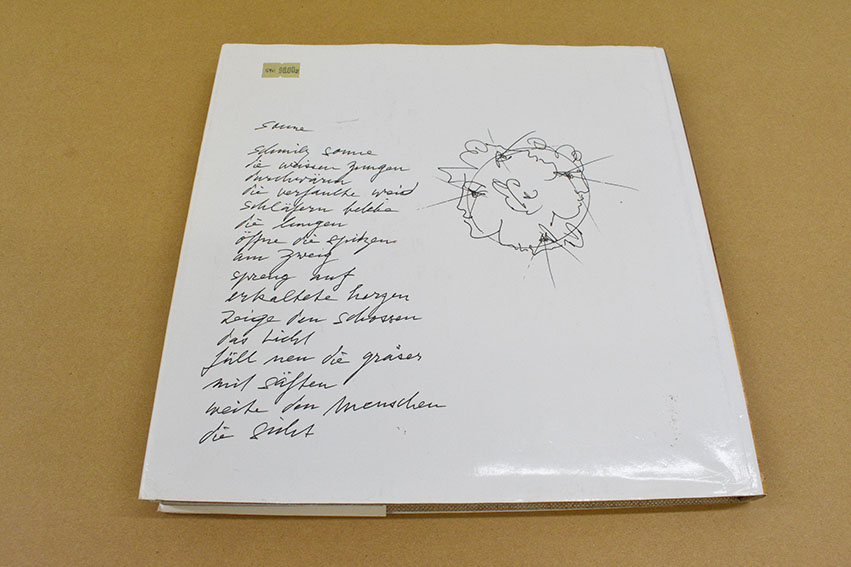 sonne
schmilz sonne
die weissen zungen
durchwärm
die verfaulte
schläfern
die lungen
öffne die spitzen
am zweig
spreng auf
erkaltete herzen
zeige den schossen
das licht
füll neu die gräser
mit säften
weite den menschen
die sicht